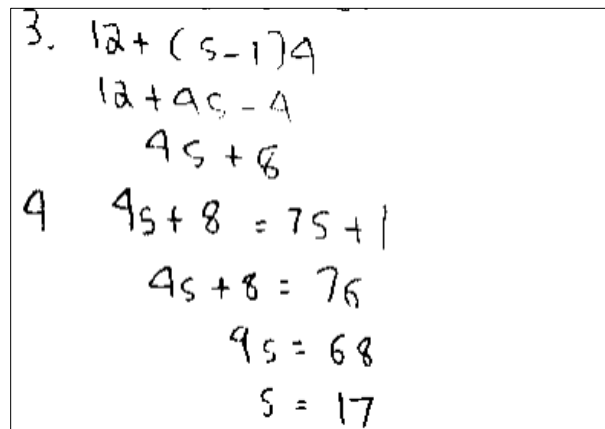 3. 12 + (s - 1)4
12 + 4s - 4
4s + 8
4 4s + 8 = 75 + 1
4s + 8 = 76
4s = 68
s = 17